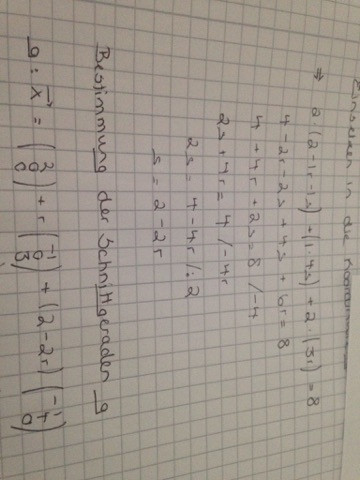 Einsetzen in die
⇒ 2·(2-1r-1s)+(1·4s)+2·(3r)=8
4-2r-2s+4s+6r=8
4+4r+2s=8 /-4
2s+4r=4 /-4r
2s=4-4r /:2
s=2-2r
Bestimmung der Schnittgeraden g
g: x⃗ = (2 0 0) + r (-1 0 3) + (2-2r) (-1 4 0)